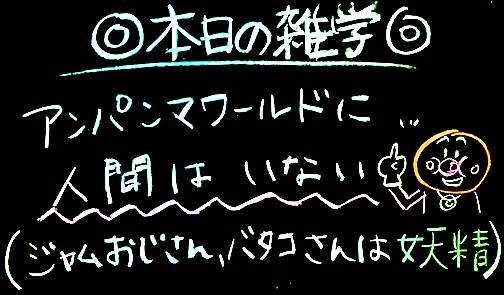 ◎本日の雑学◎
アンパンマワールドに
人間は いない
(ジャムおじさん、バタコさんは妖精)